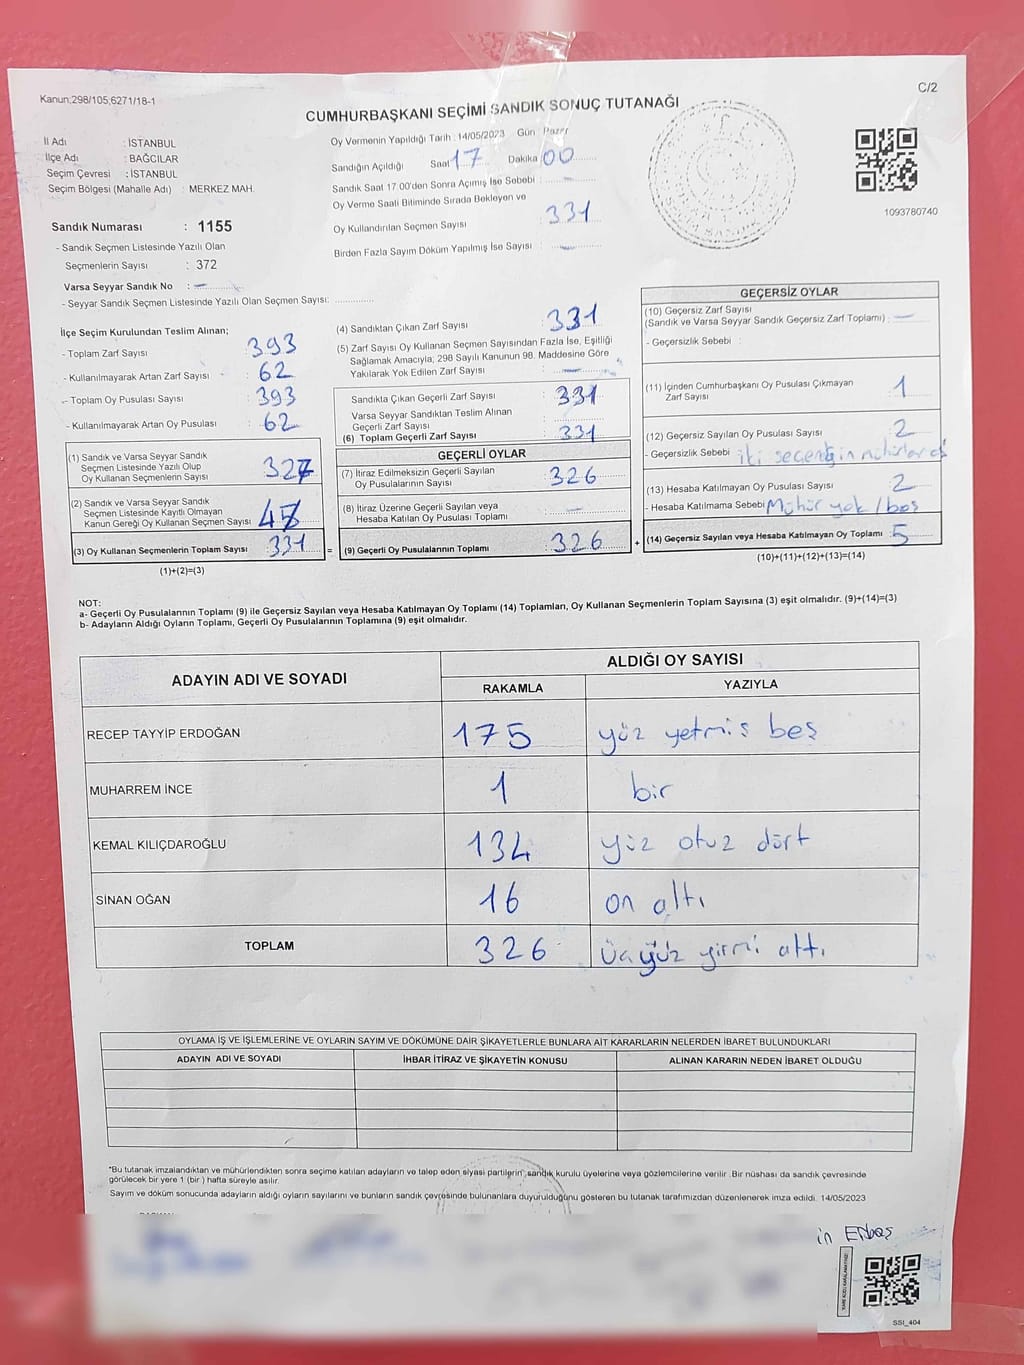 Kanun:298/105,6271/18-1
C/2
CUMHURBAŞKANI SEÇİMİ SANDIK SONUÇ TUTANAĞI
İl Adı : İSTANBUL
İlçe Adı : BAĞCILAR
Seçim Çevresi : İSTANBUL
Seçim Bölgesi (Mahalle Adı) : MERKEZ MAH.
Sandık Numarası : 1155
- Sandık Seçmen Listesinde Yazılı Olan
Seçmenlerin Sayısı : 372
Varsa Seyyar Sandık No : –
- Seyyar Sandık Seçmen Listesinde Yazılı Olan Seçmen Sayısı: ..............
Oy Vermenin Yapıldığı Tarih : 14/05/2023 Gün : Pazar
Sandığın Açıldığı Saat 17 Dakika 00
Sandık Saat 17.00'den Sonra Açımış İse Sebebi : –
Oy Verme Saati Bitiminde Sırada Bekleyen ve
Oy Kullandırılan Seçmen Sayısı : 331
Birden Fazla Sayım Döküm Yapılmış İse Sayısı : –
1093780740
İlçe Seçim Kurulundan Teslim Alınan;
- Toplam Zarf Sayısı : 393
- Kullanılmayarak Artan Zarf Sayısı : 62
- Toplam Oy Pusulası Sayısı : 393
- Kullanılmayarak Artan Oy Pusulası : 62
(1) Sandık ve Varsa Seyyar Sandık
Seçmen Listesinde Yazılı Olup
Oy Kullanan Seçmenlerin Sayısı : 327
(2) Sandık ve Varsa Seyyar Sandık
Seçmen Listesinde Kayıtlı Olmayan
Kanun Gereği Oy Kullanan Seçmen Sayısı :
(3) Oy Kullanan Seçmenlerin Toplam Sayısı : 331
(1)+(2)=(3)
(4) Sandıktan Çıkan Zarf Sayısı : 331
(5) Zarf Sayısı Oy Kullanan Seçmen Sayısından Fazla İse, Eşitliği
Sağlamak Amacıyla, 298 Sayılı Kanunun 98. Maddesine Göre
Yakılarak Yok Edilen Zarf Sayısı : –
Sandıkta Çıkan Geçerli Zarf Sayısı : 331
Varsa Seyyar Sandıktan Teslim Alınan
Geçerli Zarf Sayısı :
(6) Toplam Geçerli Zarf Sayısı : 331
GEÇERLİ OYLAR
(7) İtiraz Edilmeksizin Geçerli Sayılan
Oy Pusulalarının Sayısı : 326
(8) İtiraz Üzerine Geçerli Sayılan veya
Hesaba Katılan Oy Pusulası Toplamı : –
= (9) Geçerli Oy Pusulalarının Toplamı : 326
GEÇERSİZ OYLAR
(10) Geçersiz Zarf Sayısı
(Sandık ve Varsa Seyyar Sandık Geçersiz Zarf Toplamı) : –
- Geçersizlik Sebebi :
(11) İçinden Cumhurbaşkanı Oy Pusulası Çıkmayan
Zarf Sayısı : 1
(12) Geçersiz Sayılan Oy Pusulası Sayısı : 2
- Geçersizlik Sebebi : iki seçeneğin
(13) Hesaba Katılmayan Oy Pusulası Sayısı : 2
- Hesaba Katılmama Sebebi : Mühür yok / boş
+ (14) Geçersiz Sayılan veya Hesaba Katılmayan Oy Toplamı : 5
(10)+(11)+(12)+(13)=(14)
NOT:
a- Geçerli Oy Pusulalarının Toplamı (9) ile Geçersiz Sayılan veya Hesaba Katılmayan Oy Toplamı (14) Toplamları, Oy Kullanan Seçmenlerin Toplam Sayısına (3) eşit olmalıdır. (9)+(14)=(3)
b- Adayların Aldığı Oyların Toplamı, Geçerli Oy Pusulalarının Toplamına (9) eşit olmalıdır.
ADAYIN ADI VE SOYADI ALDIĞI OY SAYISI
RAKAMLA YAZIYLA
RECEP TAYYİP ERDOĞAN 175 yüz yetmiş beş
MUHARREM İNCE 1 bir
KEMAL KILIÇDAROĞLU 134 yüz otuz dört
SİNAN OĞAN 16 on altı
TOPLAM 326 üçyüz yirmi altı
OYLAMA İŞ VE İŞLEMLERİNE VE OYLARIN SAYIM VE DÖKÜMÜNE DAİR ŞİKAYETLERLE BUNLARA AİT KARARLARIN NELERDEN İBARET BULUNDUKLARI
ADAYIN ADI VE SOYADI İHBAR İTİRAZ VE ŞİKAYETİN KONUSU ALINAN KARARIN NEDEN İBARET OLDUĞU
*Bu tutanak imzalandıktan ve mühürlendikten sonra seçime katılan adayların ve talep eden siyasi partilerin, sandık kurulu üyelerine veya gözlemcilerine verilir .Bir nüshası da sandık çevresinde
görülecek bir yere 1 (bir ) hafta süreyle asılır.
Sayım ve döküm sonucunda adayların aldığı oyların sayılarını ve bunların sandık çevresinde bulunanlara duyurulduğunu gösteren bu tutanak tarafımızdan düzenlenerek imza edildi. 14/05/2023
in Erbaş
SSI_404